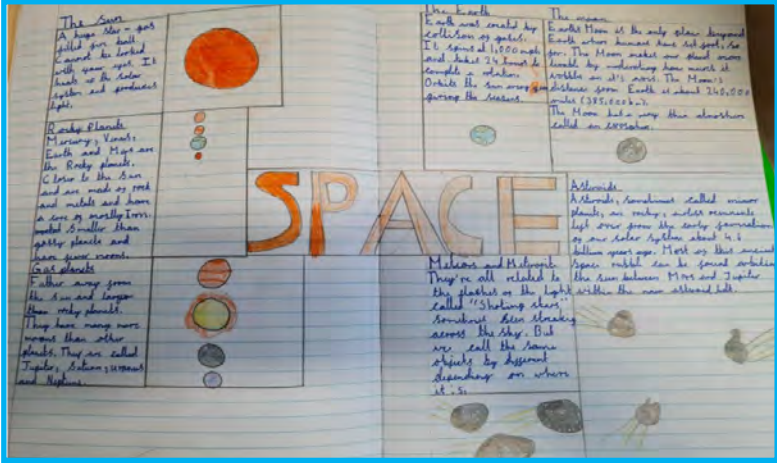 The Sun
A huge star - gas
filled fire ball.
Cannot be looked
with your eyes. It
heats up the solar
system and produces
light.
Rocky Planets
Mercury, Venus,
Earth and Mars are
the Rocky planets.
Closer to the Sun
and are made of rock
and metals and have
a core of mostly Iron.
metal Smaller than
gassy planets and
have fewer moons.
Gas planets
Father away from
the sun and larger
than rocky planets.
They have many more
moons than other
planets. They are called
Jupiter, Saturn, Uranus
and Neptune.
SPACE
The Earth
Earth was created by
collision of gases.
It spins at 1,000 mph
and takes 24 hours to
complete a rotation.
Orbits the sun
giving the seasons.
The moon
Earths Moon is the only place beyond
Earth where humans have set foot, so
far. The Moon makes our planet more
by moderating how much it
wobbles on it's axis. The Moon's
distance from Earth is about 240,000
miles (385,000km).
The Moon has a very thin atmosphere
called an exosphere.
Asteroids
Asteroids, sometimes called minor
planets, are rocky, airless remnants
left over from the early formation
of our solar system about 4.6
billion years ago. Most of this ancient
space rubble can be found orbiting
the sun between Mars and Jupiter
within the main asteroid belt.
Meteors and Meteorite
They're all related to
the flashes of the light
called "Shoting stars"
sometimes seen streaking
across the sky. But
we call the same
objects by different
depending on where
it is.